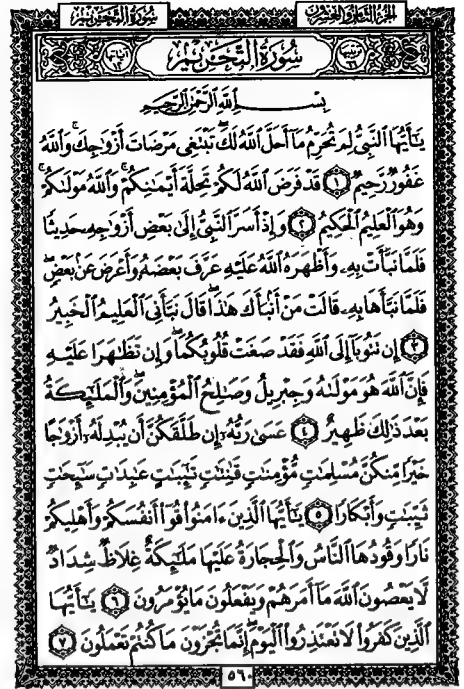 سُورَةُ التَّحْرِيمِ
الجُزْءُ الثَّامِنُ وَالعِشْرُونَ
سُورَةُ التَّحْرِيمِ
بِسْمِ ٱللَّهِ ٱلرَّحْمَٰنِ ٱلرَّحِيمِ
يَٰٓأَيُّهَا ٱلنَّبِىُّ لِمَ تُحَرِّمُ مَآ أَحَلَّ ٱللَّهُ لَكَ ۖ تَبْتَغِى مَرْضَاتَ أَزْوَٰجِكَ ۚ وَٱللَّهُ
غَفُورٌ رَّحِيمٌ ١ قَدْ فَرَضَ ٱللَّهُ لَكُمْ تَحِلَّةَ أَيْمَٰنِكُمْ ۚ وَٱللَّهُ مَوْلَىٰكُمْ ۖ
وَهُوَ ٱلْعَلِيمُ ٱلْحَكِيمُ ٢ وَإِذْ أَسَرَّ ٱلنَّبِىُّ إِلَىٰ بَعْضِ أَزْوَٰجِهِۦ حَدِيثًا
فَلَمَّا نَبَّأَتْ بِهِۦ وَأَظْهَرَهُ ٱللَّهُ عَلَيْهِ عَرَّفَ بَعْضَهُۥ وَأَعْرَضَ عَنۢ بَعْضٍ ۖ
فَلَمَّا نَبَّأَهَا بِهِۦ قَالَتْ مَنْ أَنۢبَأَكَ هَٰذَا ۖ قَالَ نَبَّأَنِىَ ٱلْعَلِيمُ ٱلْخَبِيرُ
٣ إِن تَتُوبَآ إِلَى ٱللَّهِ فَقَدْ صَغَتْ قُلُوبُكُمَا ۖ وَإِن تَظَٰهَرَا عَلَيْهِ
فَإِنَّ ٱللَّهَ هُوَ مَوْلَىٰهُ وَجِبْرِيلُ وَصَٰلِحُ ٱلْمُؤْمِنِينَ ۖ وَٱلْمَلَٰٓئِكَةُ
بَعْدَ ذَٰلِكَ ظَهِيرٌ ٤ عَسَىٰ رَبُّهُۥٓ إِن طَلَّقَكُنَّ أَن يُبْدِلَهُۥٓ أَزْوَٰجًا
خَيْرًا مِّنكُنَّ مُسْلِمَٰتٍ مُّؤْمِنَٰتٍ قَٰنِتَٰتٍ تَٰٓئِبَٰتٍ عَٰبِدَٰتٍ سَٰٓئِحَٰتٍ
ثَيِّبَٰتٍ وَأَبْكَارًا ٥ يَٰٓأَيُّهَا ٱلَّذِينَ ءَامَنُوا۟ قُوٓا۟ أَنفُسَكُمْ وَأَهْلِيكُمْ
نَارًا وَقُودُهَا ٱلنَّاسُ وَٱلْحِجَارَةُ عَلَيْهَا مَلَٰٓئِكَةٌ غِلَاظٌ شِدَادٌ
لَّا يَعْصُونَ ٱللَّهَ مَآ أَمَرَهُمْ وَيَفْعَلُونَ مَا يُؤْمَرُونَ ٦ يَٰٓأَيُّهَا
ٱلَّذِينَ كَفَرُوا۟ لَا تَعْتَذِرُوا۟ ٱلْيَوْمَ ۖ إِنَّمَا تُجْزَوْنَ مَا كُنتُمْ تَعْمَلُونَ ٧
٥٦٠